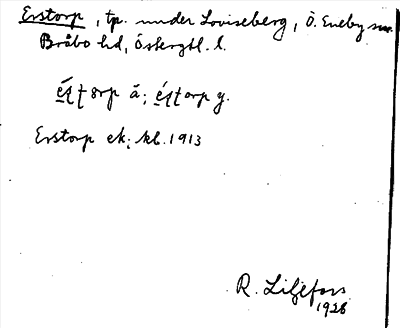 Erstorp, tp. under Loviseberg, Ö. Eneby sn.
Bråbo hd, Östergtl. l.
Erstorp ek; kb. 1913
R. Liljefors
1928